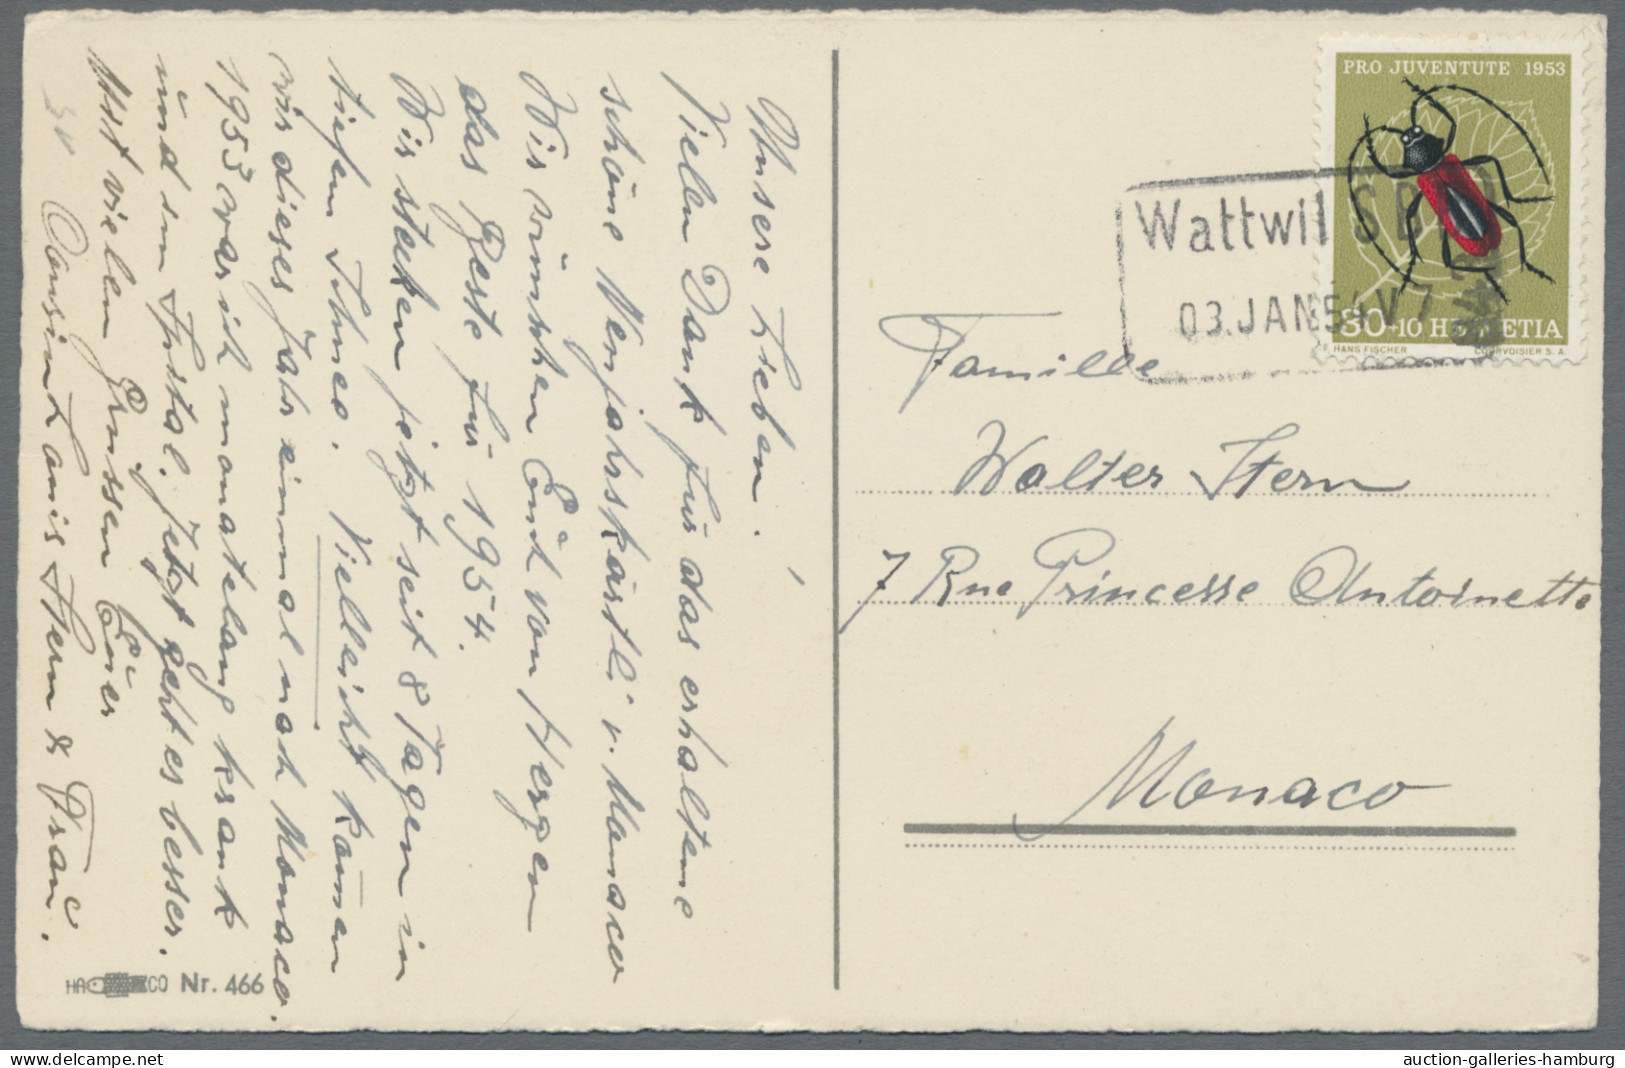 Unsere Lieben!
Vielen Dank für das erhaltene
schöne Nerjahrskärtli v. Monaco
Wir wünschen Eüch von Herzen
das Beste für 1954.
Wir stecken jetzt seit 8 Tagen in
tiefen Schnee. Vielleicht kommen
wir dieses Jahr einmal nach Monaco.
1953 war ich monatelang krank
und im Spital. Jetzt geht es besser.
Mit vielen Grüssen Eüer
Cousin Louis Stern & Frau.
HACO Nr. 466
PRO JUVENTUTE 1953
30+10 HELVETIA
HANS FISCHER COURVOISIER S.A.
Wattwil SBB
03.JAN54V7
Famille
Walter Stern
7 Rue Princesse Antoinette
Monaco
delcampe.net
auction-galleries-hamburg